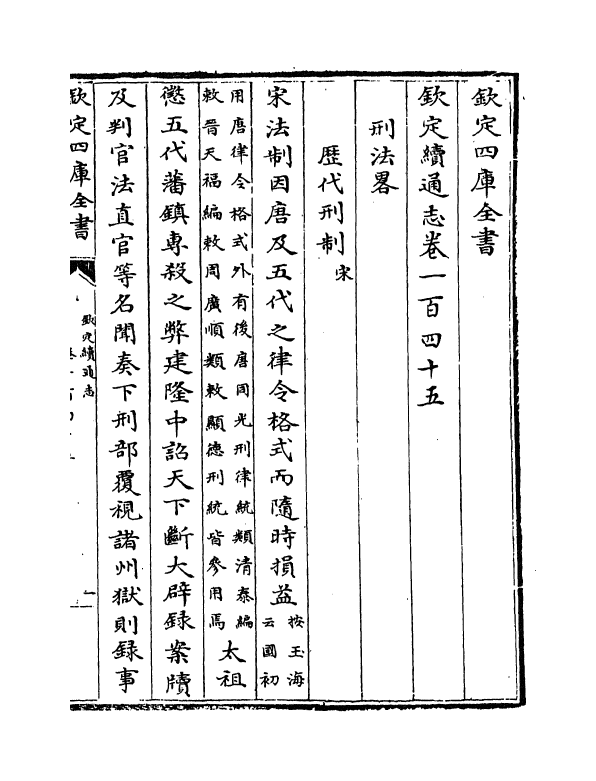 欽定四庫全書
欽定續通志卷一百四十五
刑法畧
歴代刑制宋
宋法制因唐及五代之律令格式而隨時損益按玉海云國初
用唐律令格式外有後唐同光刑律統類清泰編
敕晉天福編敕周廣順類敕顯德刑統皆參用焉太祖
懲五代藩鎮専殺之弊建隆中詔天下斷大辟録案牘
及判官法直官等名聞奏下刑部覆視諸州獄則録事
欽定四庫全書
欽定續通志